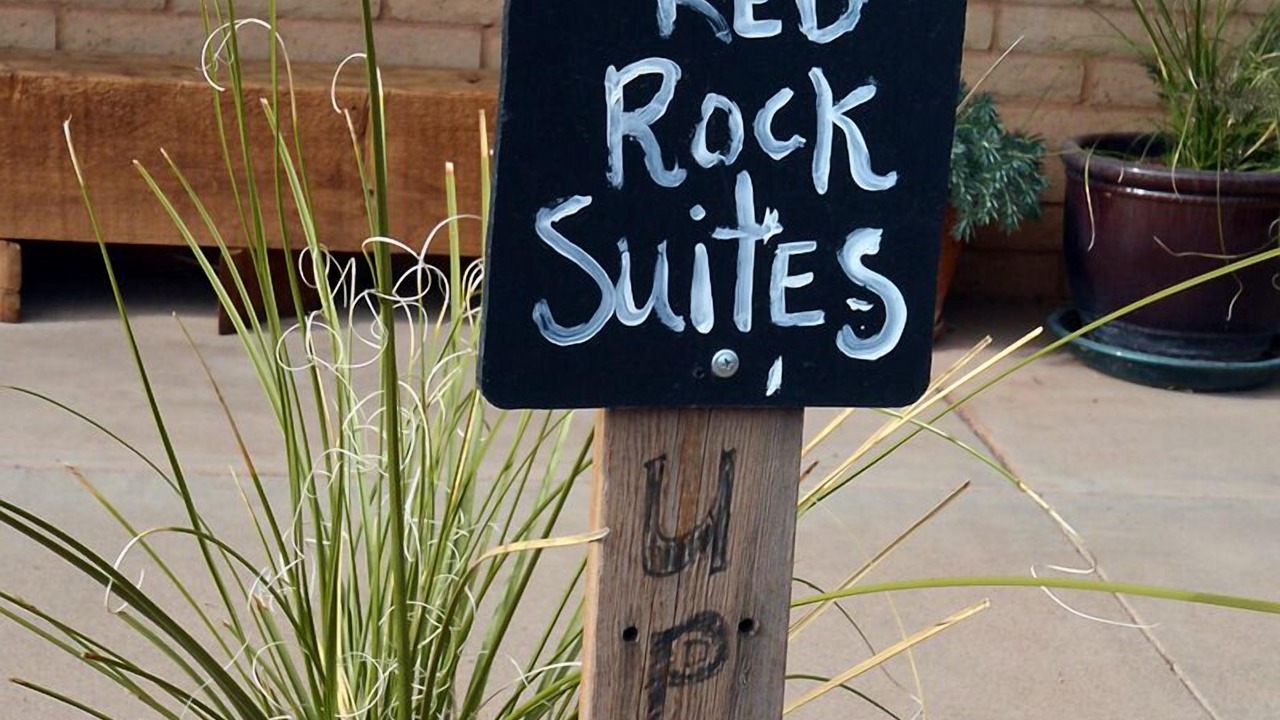 RED
ROCK
SuitES
u
p